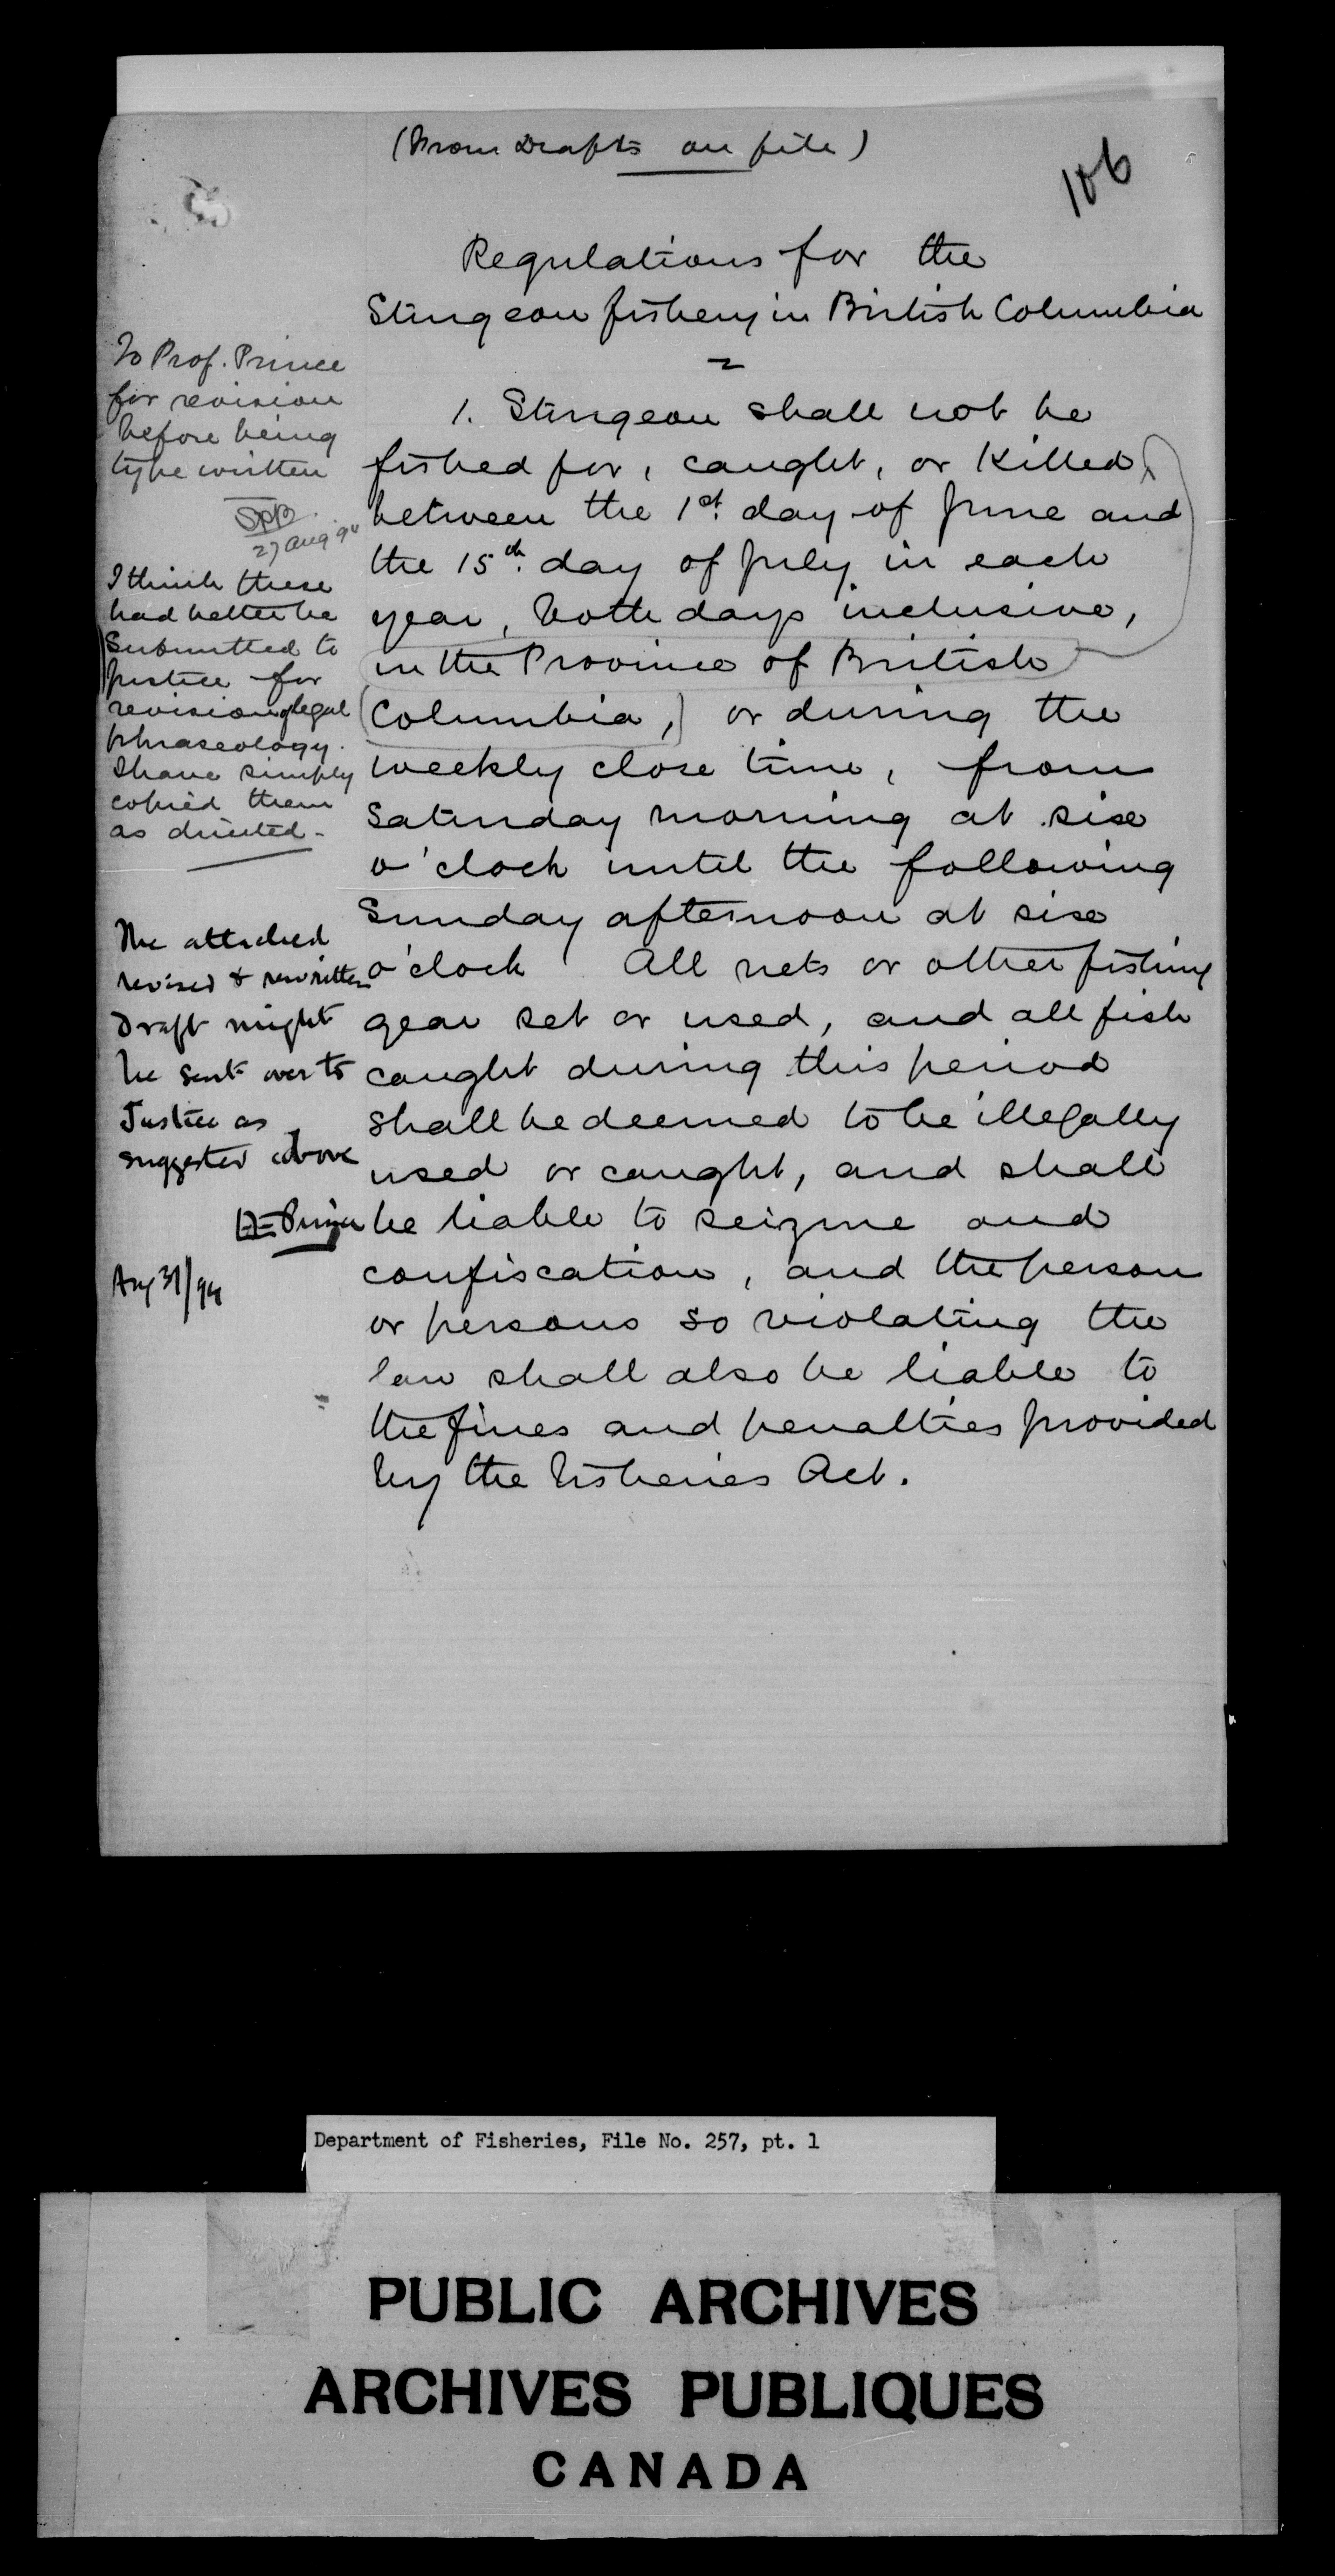 (From Drafts on file)
106
Regulations for the
Sturgeon fishery in British Columbia
1. Sturgeon shall not be
fished for, caught, or killed,
between the 1st. day of June and
the 15th. day of July in each
year, both days inclusive,
in the Province of British
Columbia, or during the
weekly close time, from
Saturday morning at six
o'clock until the following
Sunday afternoon at six
o'clock. All nets or other fishing
gear set or used, and all fish
caught during this period
shall be deemed to be illegally
used or caught, and shall
be liable to seizure and
confiscation, and the person
or persons so violating the
law shall also be liable to
the fines and penalties provided
by the Fisheries Act.
To Prof. Prince
for revision
before being
type written
27 Aug 94
I think these
had better be
submitted to
Justice for
revision of legal
phraseology.
I have simply
copied them
as directed -
The attached
revised & rewritten
Draft might
be sent over to
Justice as
suggested above
Prince
Aug 31/94
Department of Fisheries, File No. 257, pt. 1
PUBLIC ARCHIVES
ARCHIVES PUBLIQUES
CANADA